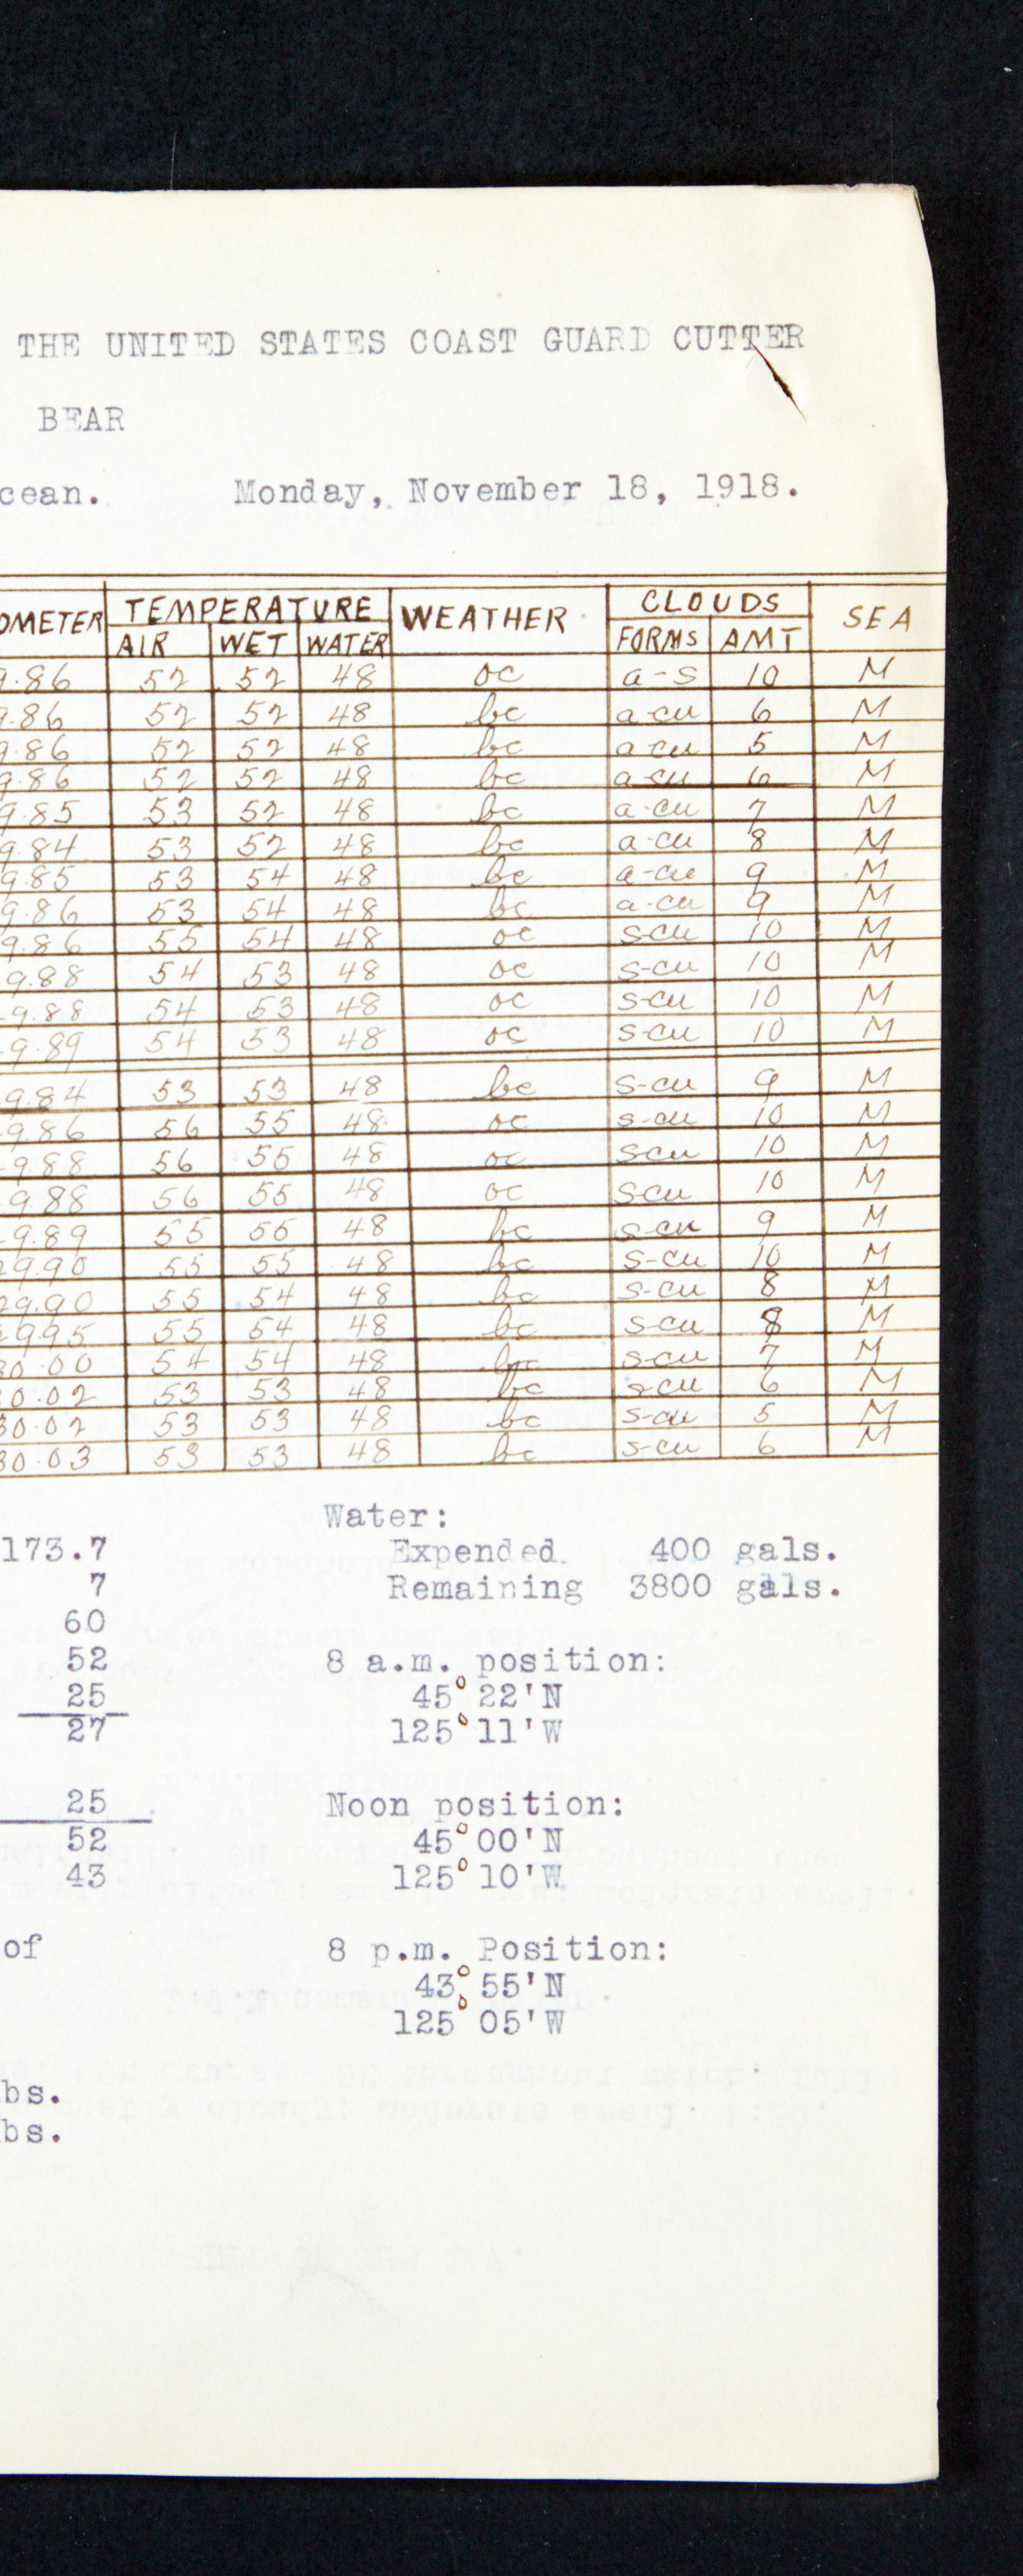 THE UNITED STATES COAST GUARD CUTTER
BEAR
cean. Monday, November 18, 1918.
OMETER TEMPERATURE WEATHER CLOUDS SEA
AIR WET WATER FORMS AMT
9.86 52 52 48 oc a-s 10 M
9.86 52 52 48 bc a-cu 6 M
9.86 52 52 48 bc a-cu 5 M
9.86 52 52 48 bc a-cu 6 M
9.85 53 52 48 bc a-cu 7 M
9.84 53 52 48 bc a-cu 8 M
9.85 53 54 48 bc a-cu 9 M
9.86 53 54 48 bc a-cu 9 M
9.86 55 54 48 oc s-cu 10 M
9.88 54 53 48 oc s-cu 10 M
9.88 54 53 48 oc s-cu 10 M
9.89 54 53 48 oc s-cu 10 M
9.84 53 53 48 bc s-cu 9 M
9.86 56 55 48 oc s-cu 10 M
9.88 56 55 48 oc s-cu 10 M
9.88 56 55 48 oc s-cu 10 M
9.89 55 55 48 bc s-cu 9 M
29.90 55 55 48 bc s-cu 10 M
29.90 55 54 48 bc s-cu 8 M
29.95 55 54 48 bc s-cu 8 M
30.00 54 54 48 bc s-cu 7 M
30.02 53 53 48 bc s-cu 6 M
30.02 53 53 48 bc s-cu 5 M
30.03 53 53 48 bc s-cu 6 M
Water:
173.7 Expended. 400 gals.
7 Remaining 3800 gals.
60
52 8 a.m. position:
25 45° 22'N
27 125° 11'W
25 Noon position:
52 45° 00'N
43 125° 10'W
of 8 p.m. Position:
43° 55'N
125° 05'W
bs.
bs.